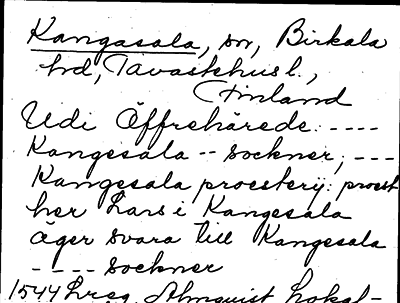 Kangasala, sn, Birkala
hd, Tavastehus l.,
Finland
Udi Öffrehärede: ----
Kangesala -- sockner, ---
Kangesala proesterij: proest
her Lars i Kangesala
äger svara till Kangesala
---- sockner
1544 Almquist Lokal-